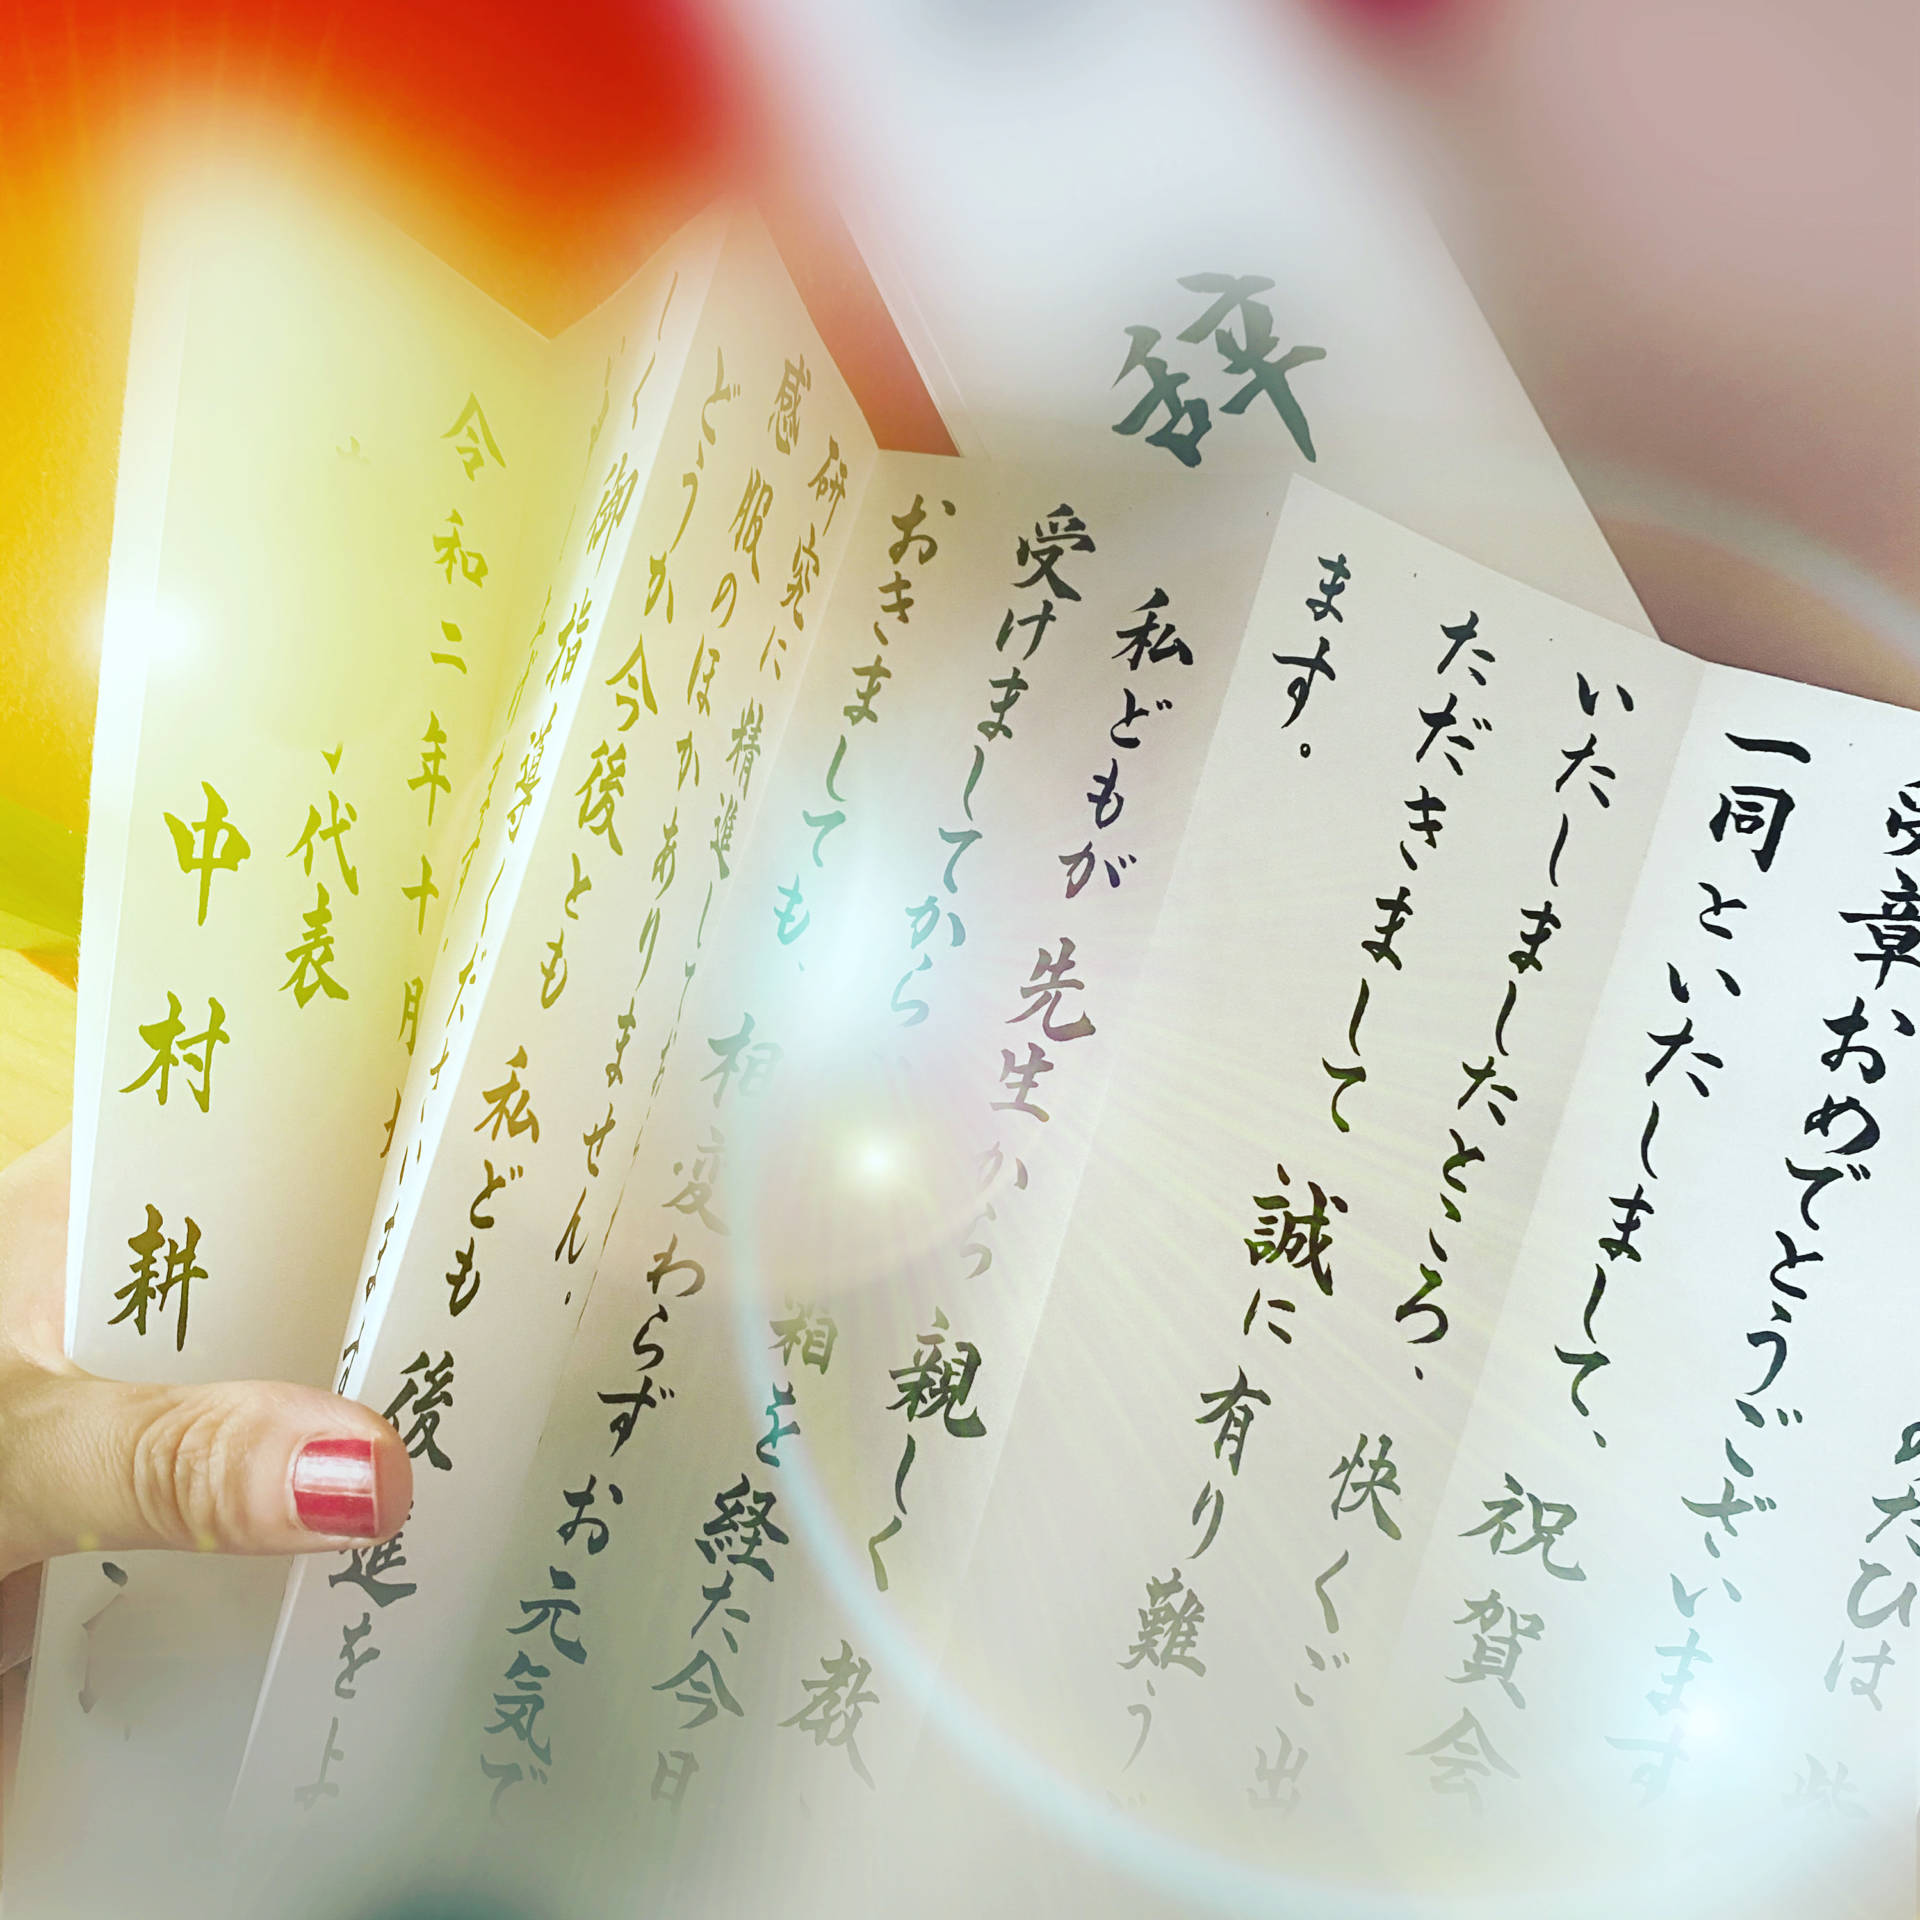 辞
のたびは
受章おめでとうございます
一同といたしまして、祝賀会
いたしましたところ、快くご出
ただきまして誠に有り難うご
ます。
私どもが先生から親しく教
受けましてから
を経た今日
おきましても、相変わらずお元気で
研究に精進して
感服のほかありません。
どうか今後とも私ども後進をよ
しく御指導
令和二年十月
代表
中村耕